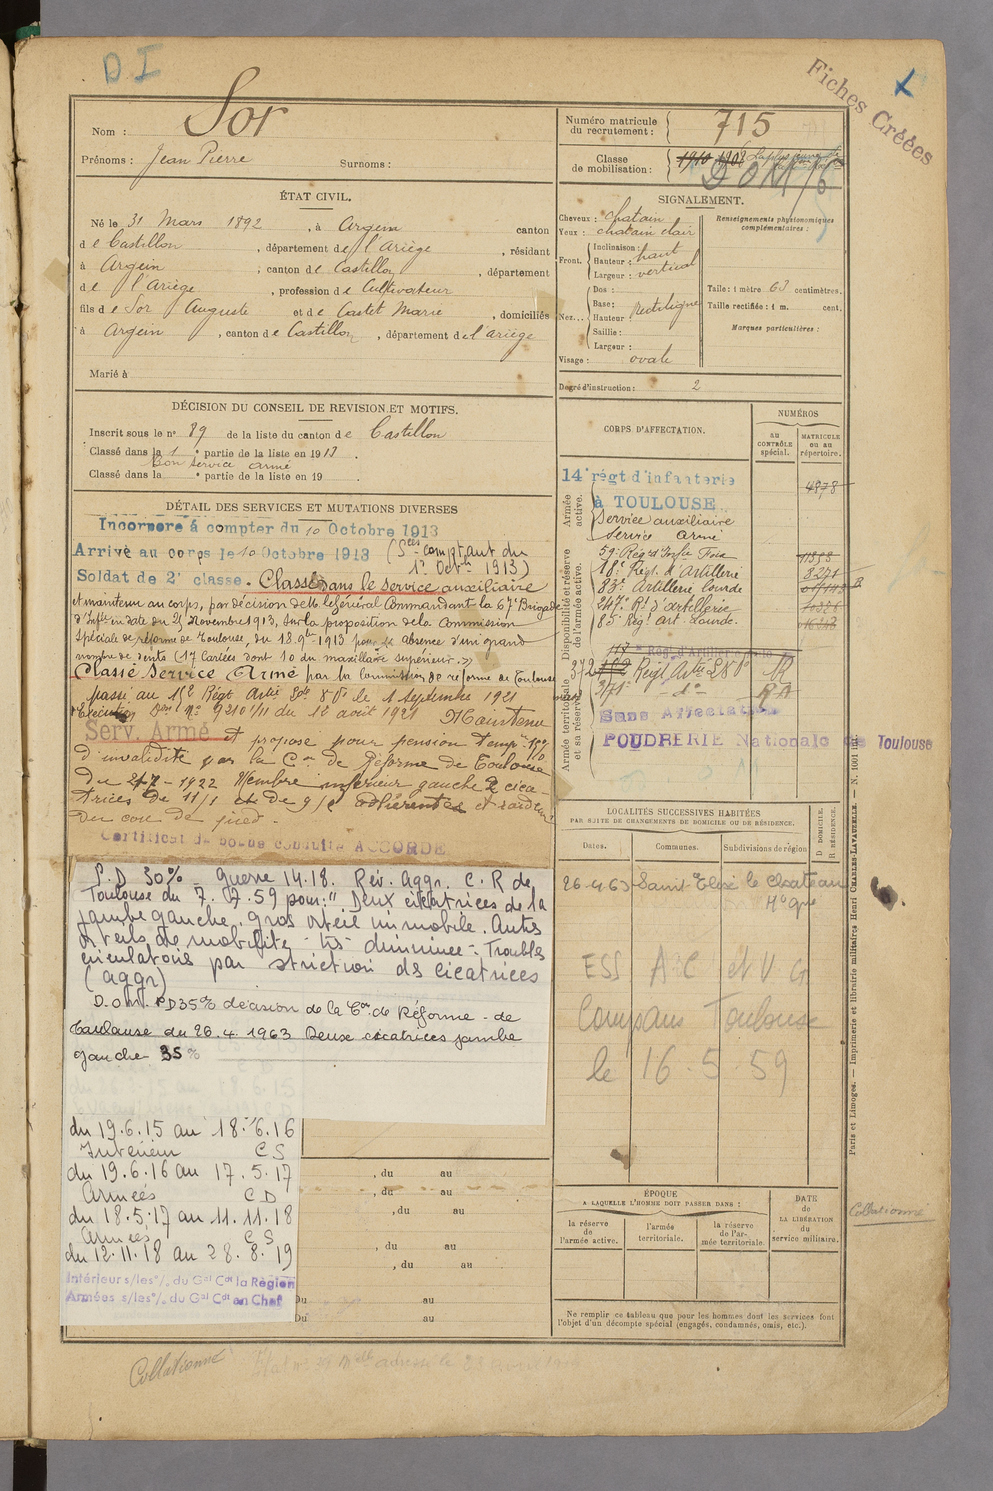 DI
Fiches Créées
Nom : Sor
Prénoms : Jean Pierre Surnoms :
Numéro matricule du recrutement : 715
Classe de mobilisation : 1910 1908
DOM/6
ÉTAT CIVIL.
Né le 31 Mars 1892, à Argein canton
de Castillon, département de l'Ariège, résidant
à Argein, canton de Castillon, département
de l'Ariège, profession de Cultivateur
fils de Sor Auguste et de Castet Marie, domiciliés
à Argein, canton de Castillon, département de l'Ariège
Marié à
SIGNALEMENT.
Cheveux : chatain
Yeux : chatain clair
Front. Inclinaison :
Hauteur : haut
Largeur : vertical
Nez... Dos :
Base : Rectiligne
Hauteur :
Saillie :
Largeur :
Visage : ovale
Renseignements physionomiques complémentaires :
Taille : 1 mètre 63 centimètres.
Taille rectifiée : 1 m. cent.
Marques particulières :
Degré d'instruction : 2
DÉCISION DU CONSEIL DE REVISION ET MOTIFS.
Inscrit sous le n° 89 de la liste du canton de Castillon
Classé dans la 1e partie de la liste en 1913.
Bon service armé
Classé dans la e partie de la liste en 19 .
DÉTAIL DES SERVICES ET MUTATIONS DIVERSES
Incorporé à compter du 10 Octobre 1913
Arrivé au corps le 10 Octobre 1913 (Ses comptant du
1er Octre 1913)
Soldat de 2e classe. Classé dans le service auxiliaire
et maintenu au corps, par décision de M. le Général Commandant la 67e Brigade
d'Inftie en date du 25 Novembre 1913, sur la proposition de la Commission
Spéciale de réforme de Toulouse, du 18 9bre 1913 pour absence d'un grand
nombre de dents (17 Cariées dont 10 du maxillaire supérieur.)
Classé Service Armé par la Commission de réforme de Toulouse
passé au Régt Artie le 1 Septembre 1921
Exécution N° 9210 1/11 du 12 août 1921 Maintenu
Serv. Armé et proposé pour pension temp. 15%
d'invalidité par la Con de Réforme de Toulouse
du 1922 Membre inférieur gauche 2 cica-
trices de 11/1 et de 9/ adhérentes et raideur
du cou de pied.
Certificat de bonne conduite ACCORDÉ
P.D 30% Guerre 14-18. Rév. Aggr. C.R de
Toulouse du 7.7.59 pour : "Deux cicatrices de la
jambe gauche. gros orteil immobile. Autres
orteils de mobilité très diminuée - Troubles
circulatoires par striction des cicatrices
(aggr)
D.O.M. PD35% décision de la Con de Réforme de
Toulouse du 26.4.1963 Deux cicatrices jambe
gauche 35%
du 19.6.15 au 18.6.16
Intérieur CS
du 19.6.16 au 17.5.17
Armées CD
du 18.5.17 au 11.11.18
Armées CS
du 12.11.18 au 28.8.19
Intérieur s/les °/, du Gal Cdt la Région
Armées s/les °/, du Gal Cdt en Chef
, du au
, du au
, du au
, du au
, du au
Du au
Du au
CORPS D'AFFECTATION.
NUMÉROS
au CONTRÔLE spécial.
MATRICULE ou au répertoire.
Armée active.
14e régt d'infanterie
à TOULOUSE
Service auxiliaire
Service armé
Disponibilité et réserve de l'armée active.
59e Rég. d'Inftie Foix
18e Régt. d'Artillerie 8271
83e Artillerie Lourde
247e Rt d'artillerie
85e Régt art. Lourde.
Armée territoriale et sa réserve.
372 Régt Artie
371e -do- RA
Sans Affectation
POUDRERIE Nationale de Toulouse
LOCALITÉS SUCCESSIVES HABITÉES
PAR SUITE DE CHANGEMENTS DE DOMICILE OU DE RÉSIDENCE.
Dates. Communes. Subdivisions de région
D DOMICILE. R RÉSIDENCE.
26-4-63 Saint Elix le Chateau
Hte Gne
ESS AC et VG
Compans Toulouse
le 16.5.59
ÉPOQUE
A LAQUELLE L'HOMME DOIT PASSER DANS :
la réserve de l'armée active.
l'armée territoriale.
la réserve de l'armée territoriale.
DATE de LA LIBÉRATION du service militaire.
Ne remplir ce tableau que pour les hommes dont les services font
l'objet d'un décompte spécial (engagés, condamnés, omis, etc.).
Paris et Limoges. — Imprimerie et librairie militaires Henri CHARLES-LAVAUZELLE. — N. 1001
Collationné
Collationné